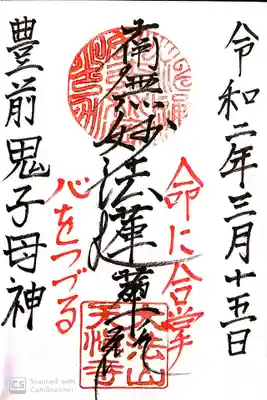 令和二年三月十五日
命に合掌
南無妙法蓮華経
心をつづる
豊前鬼子母神
大法山
天悟寺
CS Scanned with
CamScanner